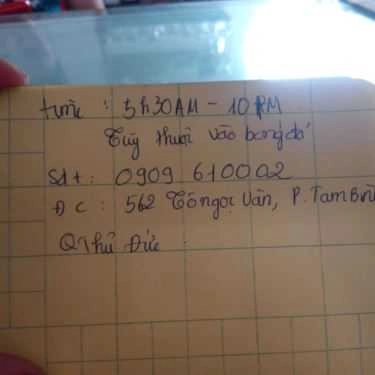 time : 5h30AM - 10PM
Tùy thuộc vào bóng đá
Sdt : 0909 610002
ĐC : 562 Tô ngọc Vân, P. Tam Bìn
Q Thủ Đức .